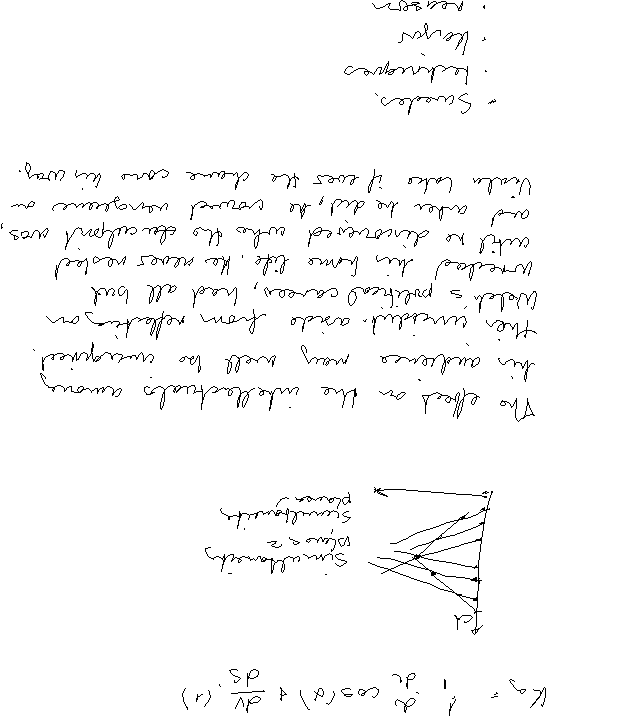 ct
Simultaneity
plane 2
Simultaneity
plane
The effect on the intellectuals among
his audience may well be imagined.
this incident. aside from reflecting on
Welch's political career, had all but
wrecked his home life. He never rested
until he discovered who the culprit was,
and when he did, he vowed vengeance on
Viola Lake if ever the chance came his way.
• Swedes.
• techniques
• reason